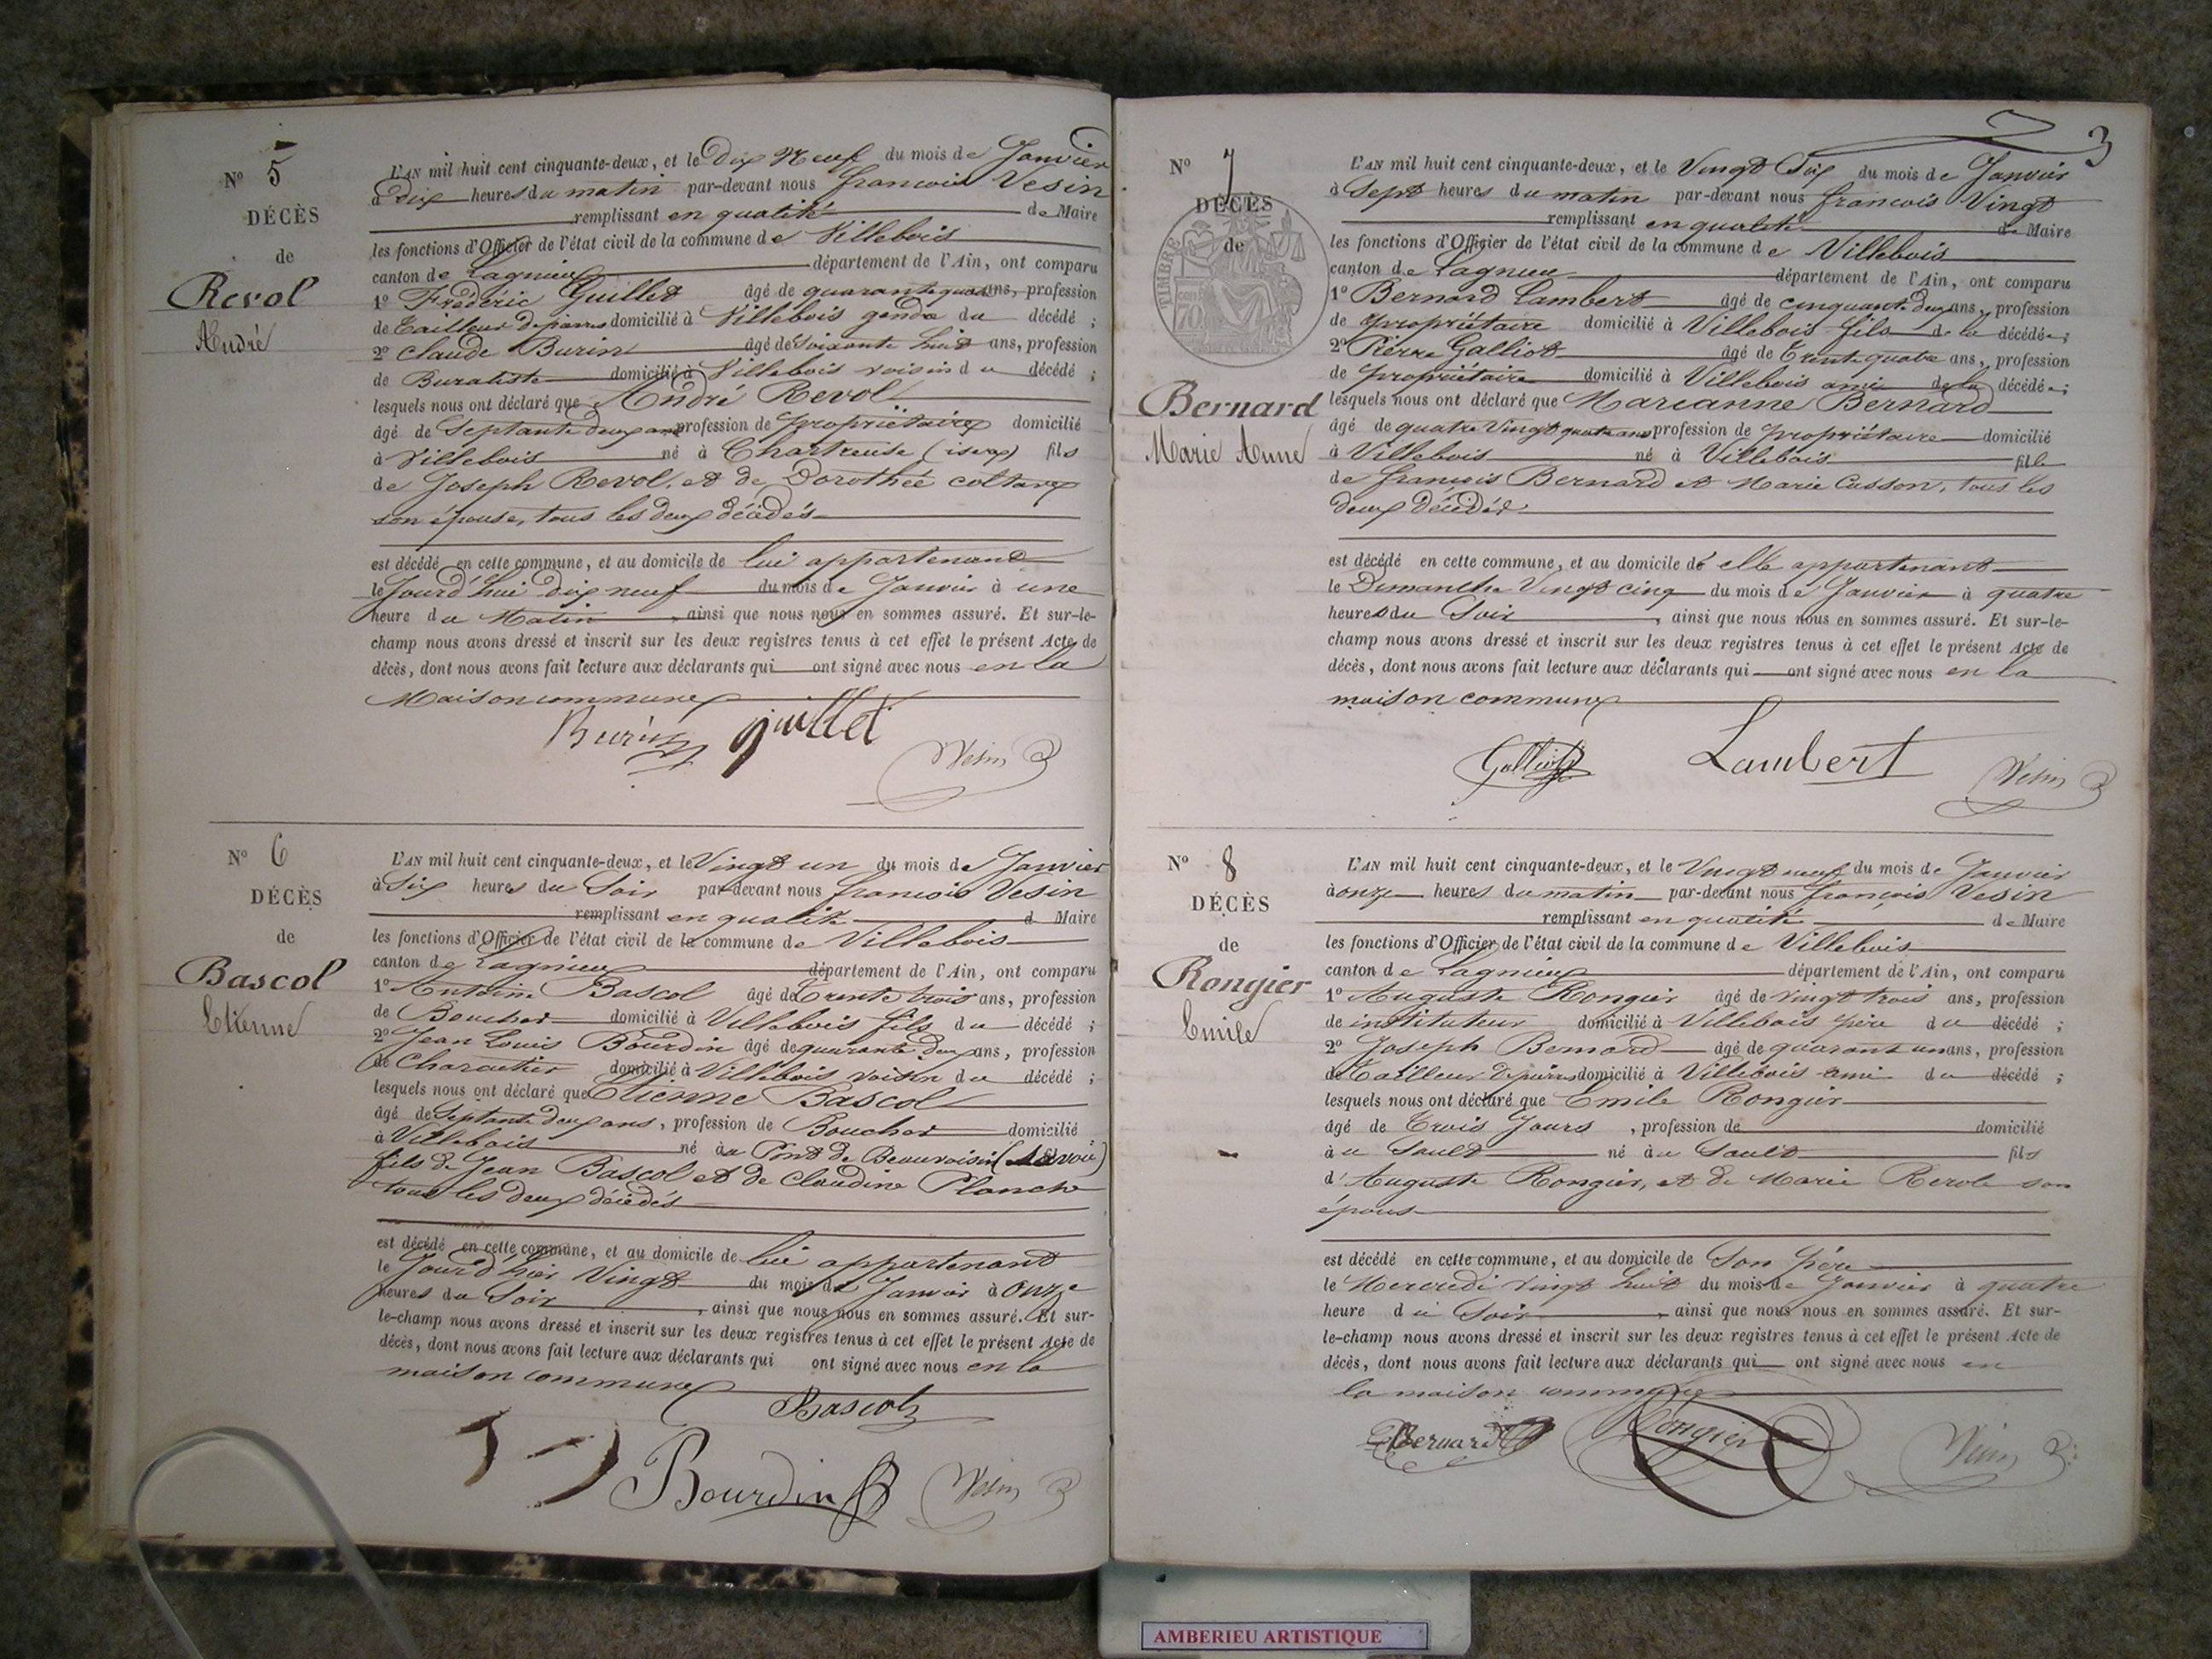 N° 5
DÉCÈS
de
Revol
André
L'AN mil huit cent cinquante-deux, et le Dix Neuf du mois de Janvier
à Dix heures du matin par-devant nous francois Vesin
remplissant en qualité de Maire
les fonctions d'Officier de l'état civil de la commune de Villebois
canton de Lagnieu département de l'Ain, ont comparu
1° Frédéric Guillet âgé de quarante quatre ans, profession
de Tailleur de pierres domicilié à Villebois gendre du décédé ;
2° Claude Burin âgé de Soixante huit ans, profession
de Buraliste domicilié à Villebois voisin du décédé ;
lesquels nous ont déclaré que André Revol
âgé de Septante deux ans profession de propriétaire domicilié
à Villebois né à Chartreuse (isere) fils
de Joseph Revol, et de Dorothée
son épouse, tous les deux décédés
est décédé en cette commune, et au domicile de lui appartenant
le Jourd'hui dix neuf du mois de Janvier à une
heure du Matin, ainsi que nous nous en sommes assuré. Et sur-le-
champ nous avons dressé et inscrit sur les deux registres tenus à cet effet le présent Acte de
décès, dont nous avons fait lecture aux déclarants qui ont signé avec nous en la
Maison commune
Burin guillet Vesin
N° 6
DÉCÈS
de
Bascol
Etienne
L'AN mil huit cent cinquante-deux, et le Vingt un du mois de Janvier
à Six heures du Soir par-devant nous francois Vesin
remplissant en qualité d Maire
les fonctions d'Officier de l'état civil de la commune de Villebois
canton de Lagnieu département de l'Ain, ont comparu
1° Antoine Bascol âgé de Trente trois ans, profession
de Boucher domicilié à Villebois fils du décédé ;
2° Jean Louis Bourdin âgé de quarante deux ans, profession
de Charcutier domicilié à Villebois voisin du décédé ;
lesquels nous ont déclaré que Etienne Bascol
âgé de Septante deux ans, profession de Boucher domicilié
à Villebois né au Pont de Beauvoisin (Savoie)
fils de Jean Bascol et de Claudine Planche
tous les deux décédés
est décédé en cette commune, et au domicile de lui appartenant
le Jour d'hier Vingt du mois de Janvier à onze
heures du Soir, ainsi que nous nous en sommes assuré. Et sur-
le-champ nous avons dressé et inscrit sur les deux registres tenus à cet effet le présent Acte de
décès, dont nous avons fait lecture aux déclarants qui ont signé avec nous en la
maison commune
Bascol
Bourdin Vesin
3
N° 7
DÉCÈS
de
TIMBRE
70
Bernard
Marie Anne
L'AN mil huit cent cinquante-deux, et le Vingt Six du mois de Janvier
à Sept heures du matin par-devant nous francois Vingt
remplissant en qualité de Maire
les fonctions d'Officier de l'état civil de la commune de Villebois
canton de Lagnieu département de l'Ain, ont comparu
1° Bernard Lambert âgé de cinquante deux ans, profession
de propriétaire domicilié à Villebois fils de la décédée ;
2° Pierre Galliot âgé de Trente quatre ans, profession
de propriétaire domicilié à Villebois ami de la décédée ;
lesquels nous ont déclaré que Marianne Bernard
âgé de quatre Vingt quatre ans profession de propriétaire domicilié
à Villebois né à Villebois fille
de françois Bernard et Marie Cusson, tous les
deux décédés
est décédé en cette commune, et au domicile de elle appartenant
le Dimanche Vingt cinq du mois de Janvier à quatre
heures du Soir, ainsi que nous nous en sommes assuré. Et sur-le-
champ nous avons dressé et inscrit sur les deux registres tenus à cet effet le présent Acte de
décès, dont nous avons fait lecture aux déclarants qui ont signé avec nous en la
maison commune
Galliot Lambert Vesin
N° 8
DÉCÈS
de
Rongier
Emile
L'AN mil huit cent cinquante-deux, et le Vingt neuf du mois de Janvier
à onze heures du matin par-devant nous françois Vesin
remplissant en qualité de Maire
les fonctions d'Officier de l'état civil de la commune de Villebois
canton de Lagnieu département de l'Ain, ont comparu
1° Auguste Rongier âgé de vingt trois ans, profession
de instituteur domicilié à Villebois père du décédé ;
2° Joseph Bernard âgé de quarante un ans, profession
de Tailleur de pierres domicilié à Villebois ami du décédé ;
lesquels nous ont déclaré que Emile Rongier
âgé de Trois Jours, profession de domicilié
à u Sault né à u Sault fils
d'Auguste Rongier, et de Marie Revole son
épouse
est décédé en cette commune, et au domicile de Son père
le Mercredi vingt huit du mois de Janvier à quatre
heure du Soir, ainsi que nous nous en sommes assuré. Et sur-
le-champ nous avons dressé et inscrit sur les deux registres tenus à cet effet le présent Acte de
décès, dont nous avons fait lecture aux déclarants qui ont signé avec nous en
la maison commune
Bernard Rongier Vesin
AMBERIEU ARTISTIQUE